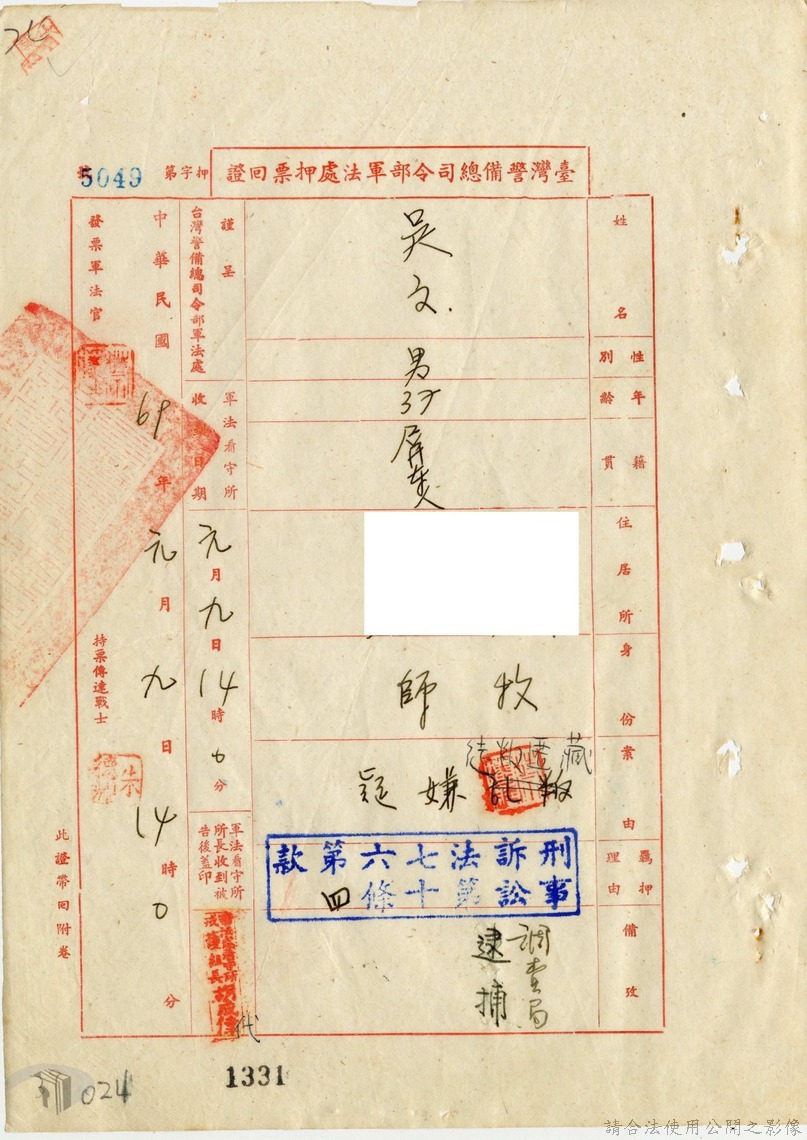 臺灣警備總司令部軍法處押票回證
押字第
5049
號
姓名
吳文
性別
男
年齡
37
籍貫
屏東
住居所
身份
牧師
案由
藏匿叛徒
嫌疑
羈押理由
刑事訴訟法第七十六條第四款
備攷
調查局
逮捕
謹呈
台灣警備總司令部軍法處
軍法看守所
收 日期
元月九日14時0分
軍法看守所所長收到被告後蓋印
代
中華民國69年元月九日14時0分
發票軍法官
持票傳達戰士
此證帶回附卷
1331
024
請合法使用公開之影像